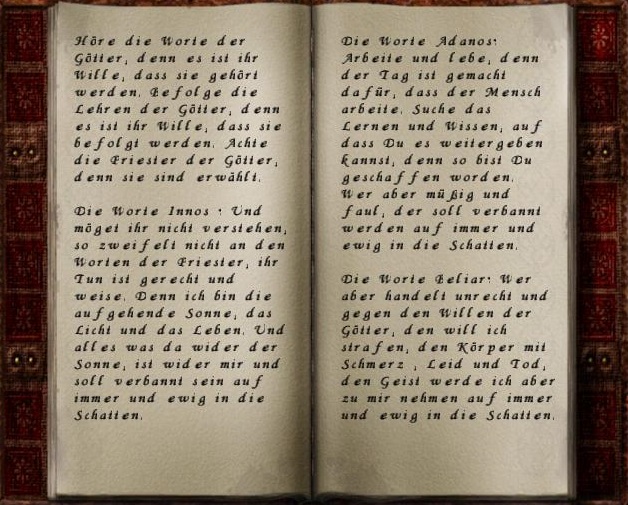 Höre die Worte der
Götter, denn es ist ihr
Wille, dass sie gehört
werden. Befolge die
Lehren der Götter, denn
es ist ihr Wille, dass sie
befolgt werden. Achte
die Priester der Götter,
denn sie sind erwählt.
Die Worte Innos : Und
möget ihr nicht verstehen,
so zweifelt nicht an den
Worten der Priester, ihr
Tun ist gerecht und
weise. Denn ich bin die
aufgehende Sonne, das
Licht und das Leben. Und
alles was da wider der
Sonne, ist wider mir und
soll verbannt sein auf
immer und ewig in die
Schatten.
Die Worte Adanos:
Arbeite und lebe, denn
der Tag ist gemacht
dafür, dass der Mensch
arbeite. Suche das
Lernen und Wissen, auf
dass Du es weitergeben
kannst, denn so bist Du
geschaffen worden.
Wer aber müßig und
faul, der soll verbannt
werden auf immer und
ewig in die Schatten.
Die Worte Beliar: Wer
aber handelt unrecht und
gegen den Willen der
Götter, den will ich
strafen, den Körper mit
Schmerz , Leid und Tod,
den Geist werde ich aber
zu mir nehmen auf immer
und ewig in die Schatten.